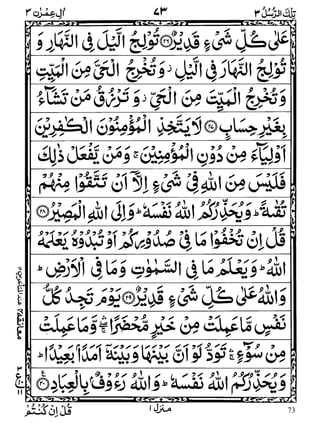 تِلْكَ الرُّسُلُ ٣ ٧٣ اٰلِ عِمْرٰن ٣
عَلٰى كُلِّ شَىْءٍ قَدِيْرٌ ﴿٢٦﴾ تُوْلِجُ الَّيْلَ فِى النَّهَارِ وَ
تُوْلِجُ النَّهَارَ فِى الَّيْلِ ز وَتُخْرِجُ الْحَىَّ مِنَ الْمَيِّتِ
وَتُخْرِجُ الْمَيِّتَ مِنَ الْحَىِّ ز وَتَرْزُقُ مَنْ تَشَآءُ
بِغَيْرِ حِسَابٍ ﴿٢٧﴾ لَا يَتَّخِذِ الْمُؤْمِنُوْنَ الْكٰفِرِيْنَ
اَوْلِيَآءَ مِنْ دُوْنِ الْمُؤْمِنِيْنَ ج وَمَنْ يَّفْعَلْ ذٰلِكَ
فَلَيْسَ مِنَ اللّٰهِ فِىْ شَىْءٍ اِلَّاۤ اَنْ تَتَّقُوْا مِنْهُمْ
تُقٰىةً ط وَيُحَذِّرُكُمُ اللّٰهُ نَفْسَهٗ ط وَاِلَى اللّٰهِ الْمَصِيْرُ ﴿٢٨﴾
قُلْ اِنْ تُخْفُوْا مَا فِىْ صُدُوْرِكُمْ اَوْ تُبْدُوْهُ يَعْلَمْهُ
اللّٰهُ ط وَيَعْلَمُ مَا فِى السَّمٰوٰتِ وَمَا فِى الْاَرْضِ ط
وَاللّٰهُ عَلٰى كُلِّ شَىْءٍ قَدِيْرٌ ﴿٢٩﴾ يَوْمَ تَجِدُ كُلُّ
نَفْسٍ مَّا عَمِلَتْ مِنْ خَيْرٍ مُّحْضَرًا ج وَّمَا عَمِلَتْ
مِنْ سُوْٓءٍ ج تَوَدُّ لَوْ اَنَّ بَيْنَهَا وَبَيْنَهٗۤ اَمَدًۢا بَعِيْدًا ط
وَيُحَذِّرُكُمُ اللّٰهُ نَفْسَهٗ ط وَاللّٰهُ رَءُوْفٌۢ بِالْعِبَادِ ﴿٣٠﴾
قُلْ اِنْ كُنْتُمْ منزل ١ 73